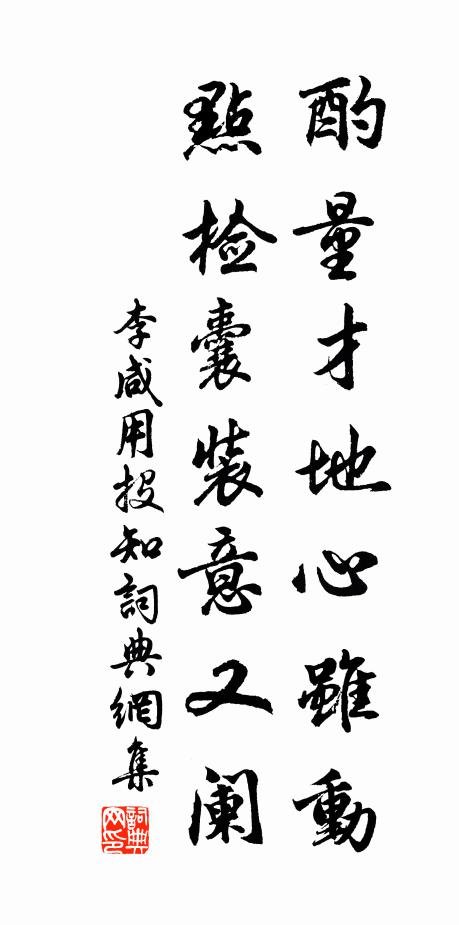 酌量才地心雖動
點檢囊裝意又阑
李咸用投知詞典網集
詞典
网印